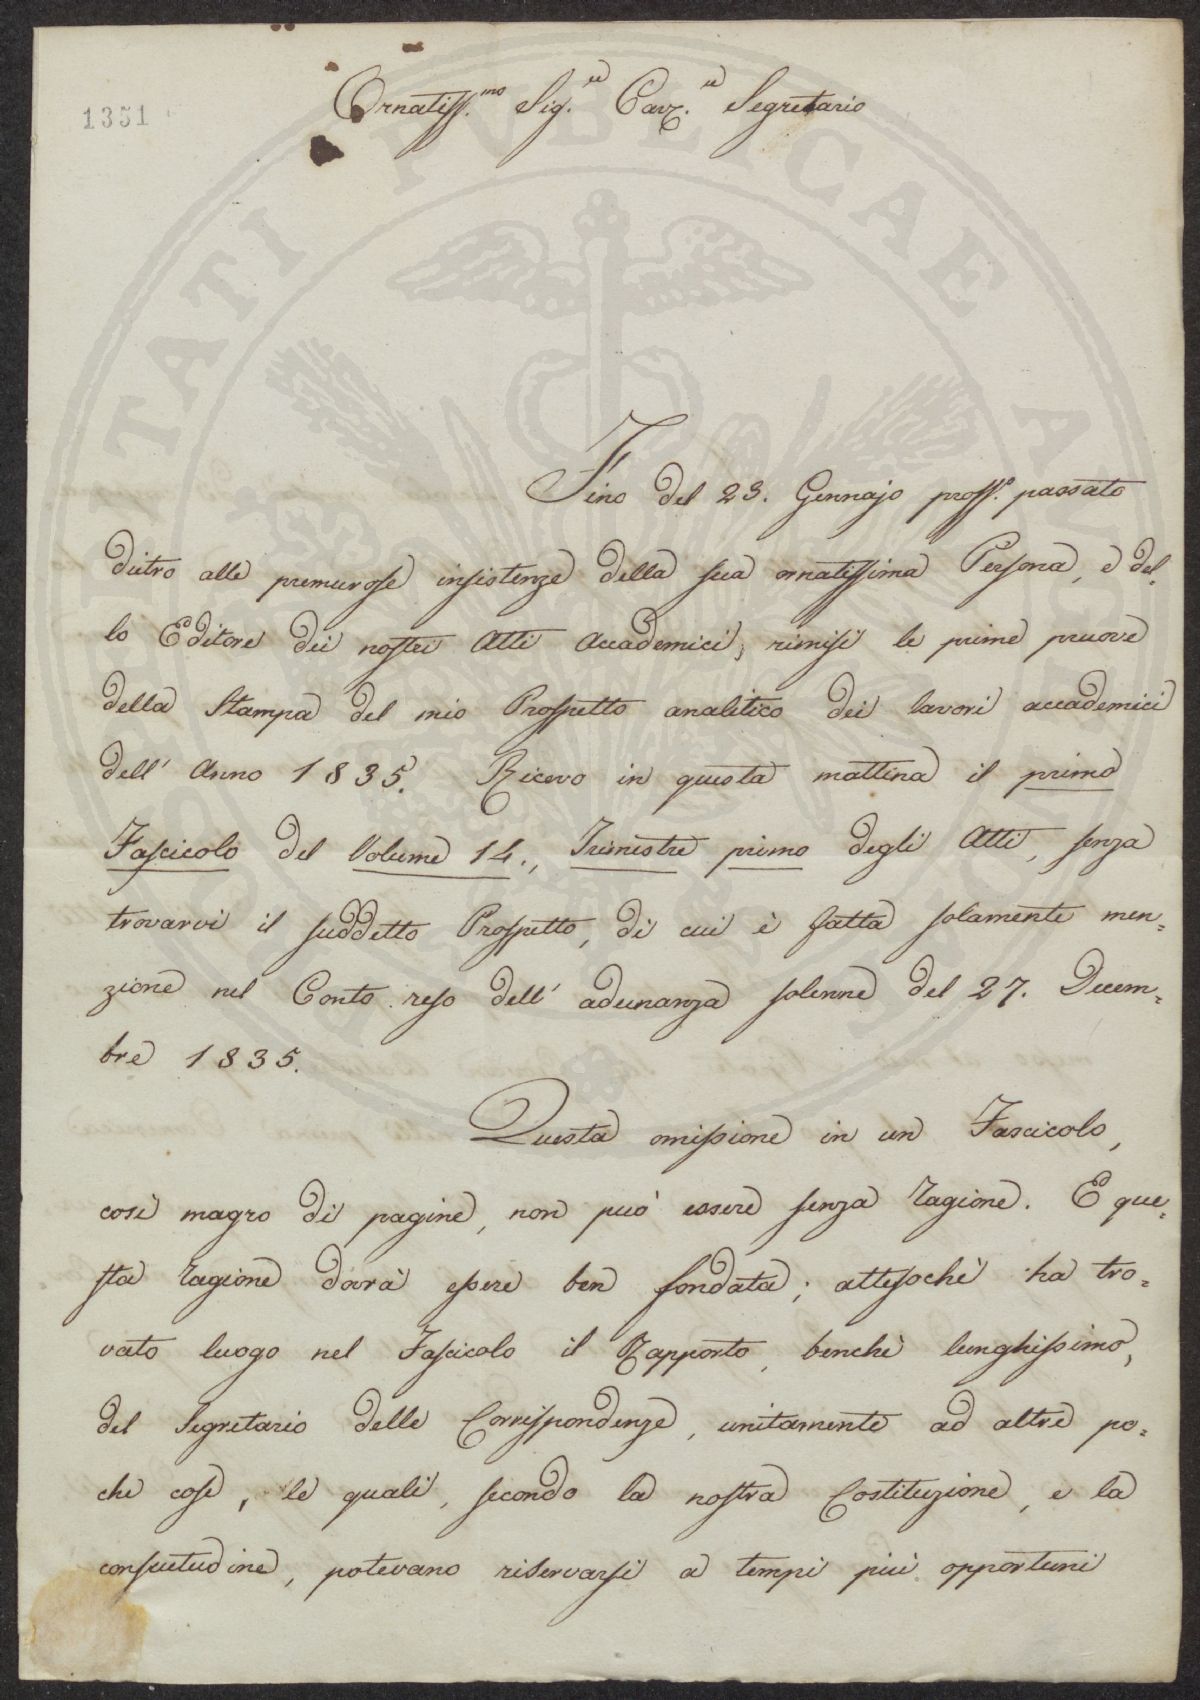 1351
Ornatiss.mo Sig.re Cav.re Segretario
Fino del 23. Gennajo pross.o passato
dietro alle premurose insistenze della sua ornatissima Persona, e del-
lo Editore dei nostri Atti Accademici, rimisi le prime pruove
della Stampa del mio Prospetto analitico dei lavori accademici
dell' Anno 1835. Ricevo in questa mattina il primo
Fascicolo del Volume 14., Trimestre primo degli Atti, senza
trovarvi il suddetto Prospetto, di cui è fatta solamente men=
zione nel Conto reso dell' adunanza solenne del 27. Decem=
bre 1835.
Questa omissione in un Fascicolo,
così magro di pagine, non può essere senza ragione. E que=
sta ragione dovrà essere ben fondata; attesochè ha tro=
vato luogo nel Fascicolo il Rapporto, benchè lunghissimo,
del Segretario delle Corrispondenze, unitamente ad altre po=
che cose, le quali, secondo la nostra Costituzione, e la
consuetudine, potevano riservarsi a tempi più opportuni